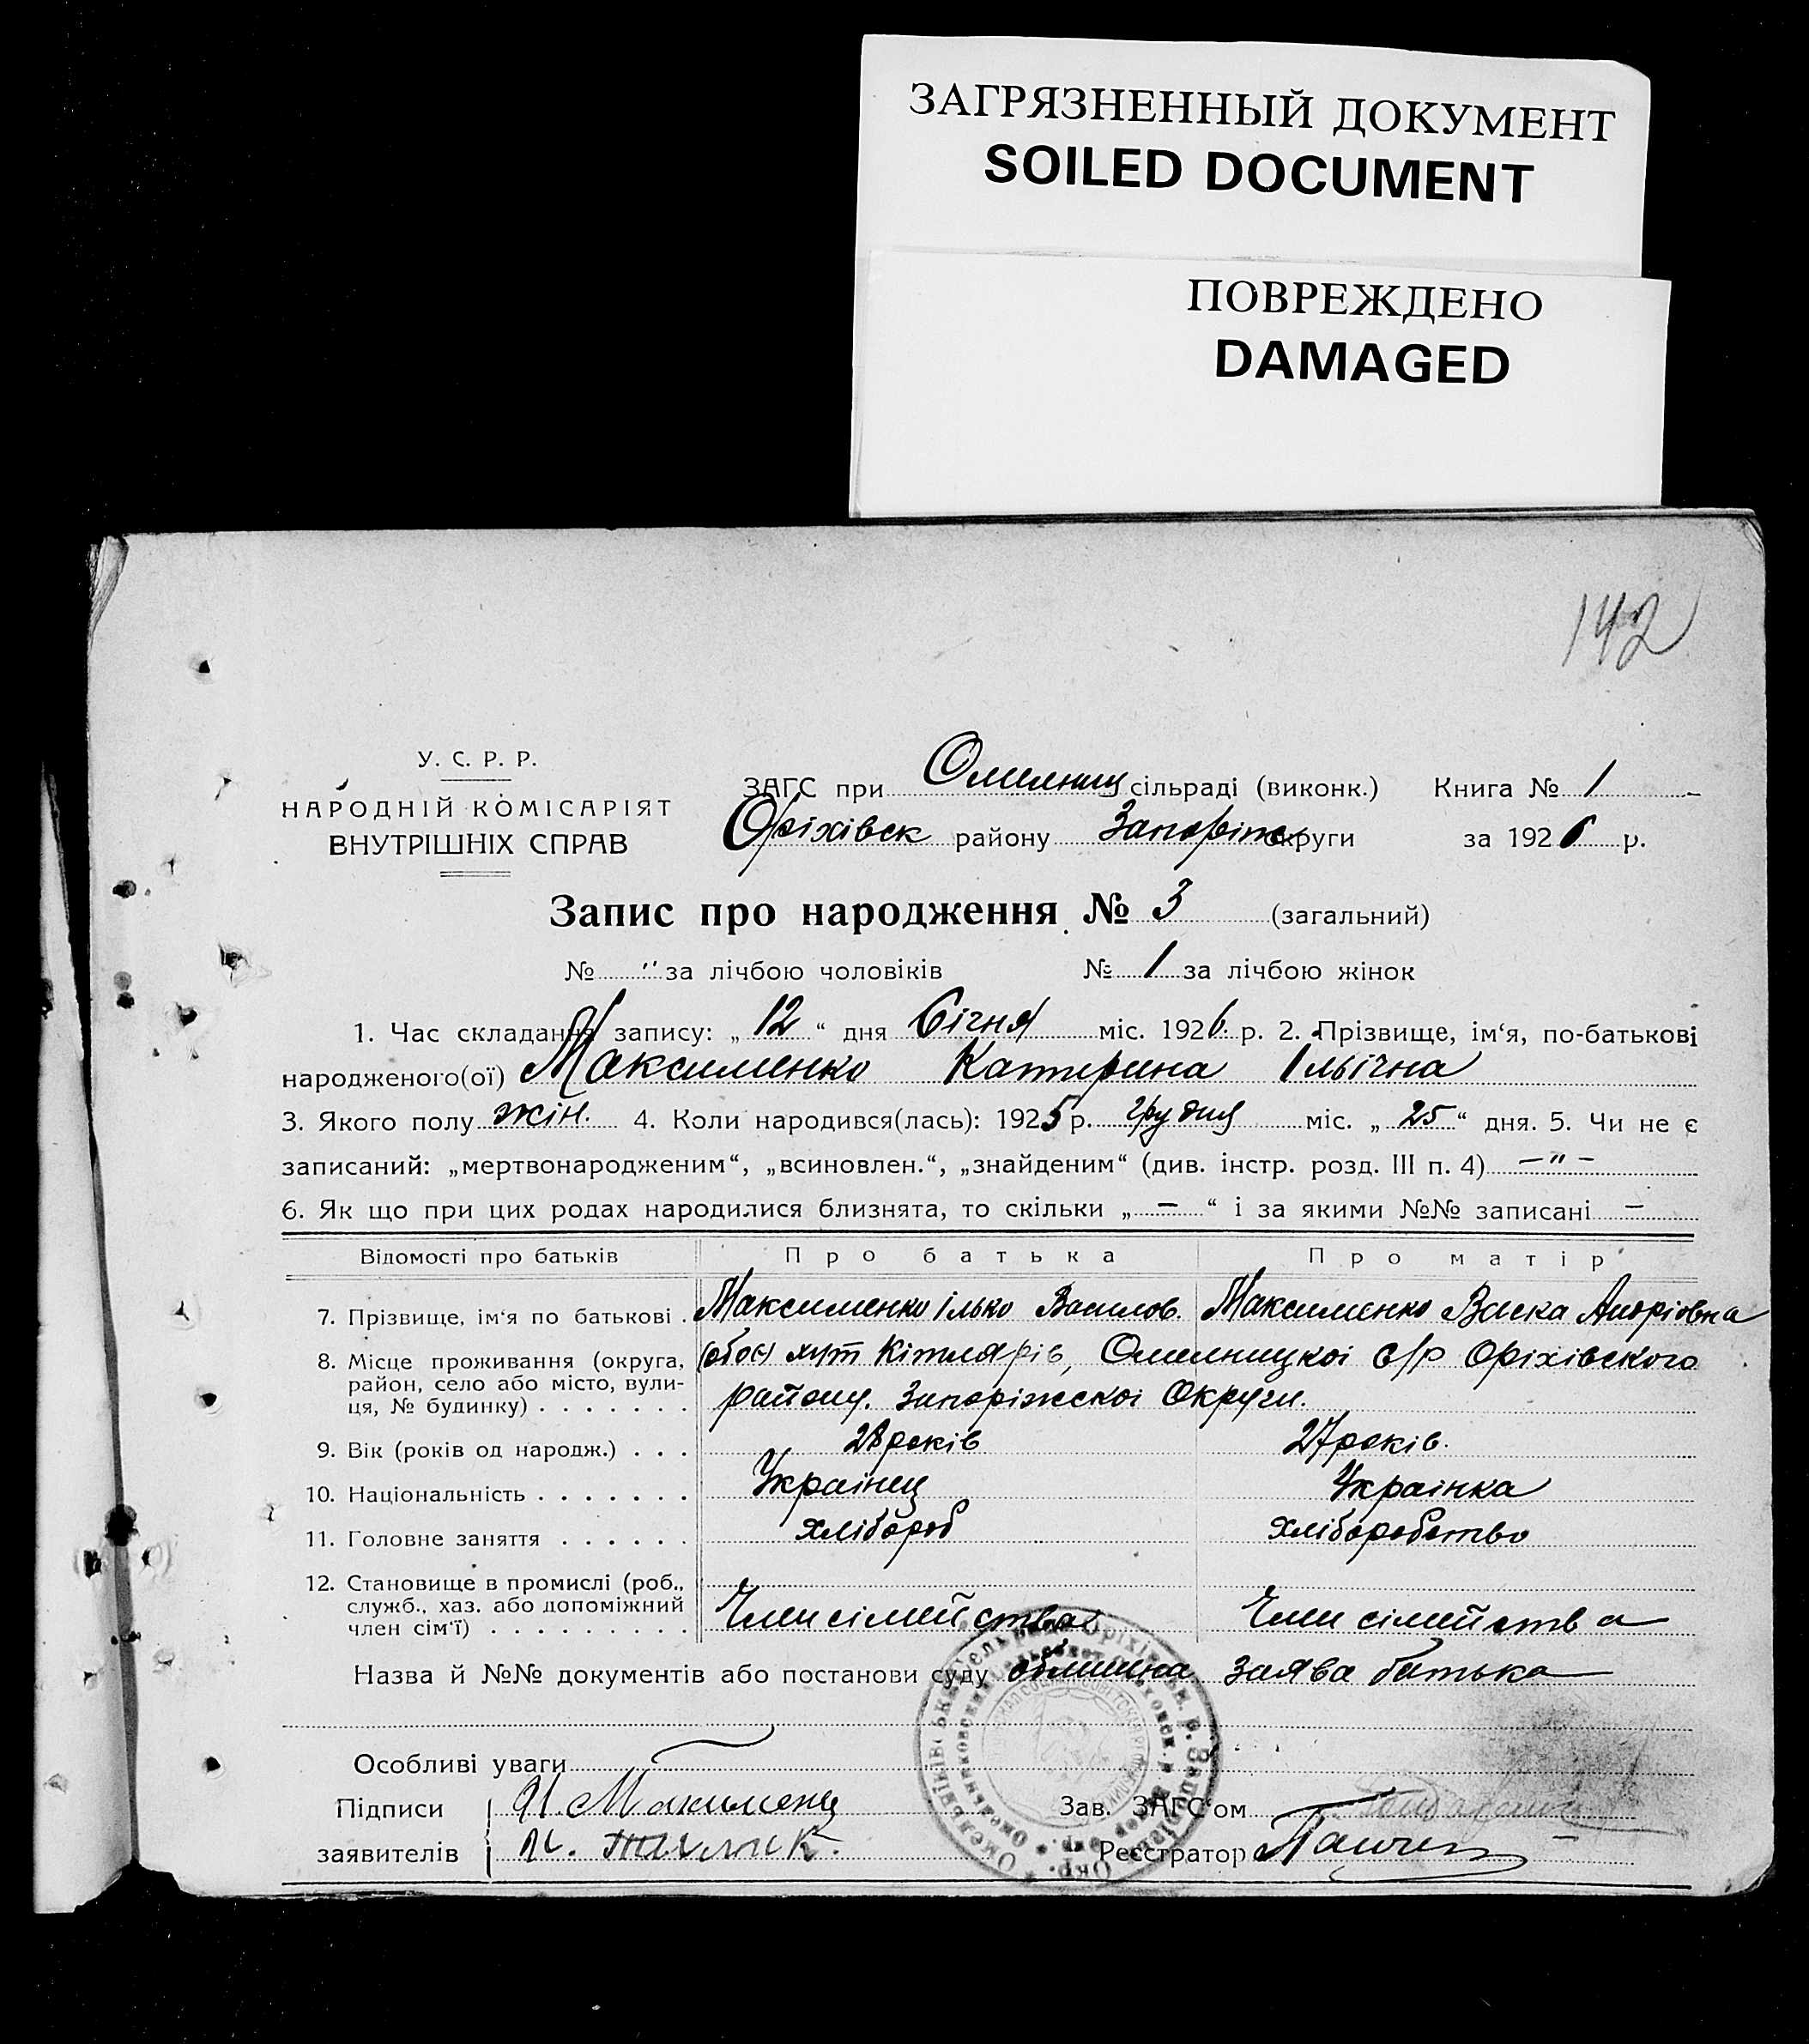 ЗАГРЯЗНЕННЫЙ ДОКУМЕНТ
SOILED DOCUMENT
ПОВРЕЖДЕНО
DAMAGED
142
У. С. Р. Р.
НАРОДНІЙ КОМІСАРІЯТ
ВНУТРІШНІХ СПРАВ
ЗАГС при Омельниц сільраді (виконк.) Книга № 1
Оріхівск району Запоріж округи за 1926 р.
Запис про народження № 3 (загальний)
№ " за лічбою чоловіків № 1 за лічбою жінок
1. Час складання запису: „ 12 “ дня Січня міс. 1926. р. 2. Прізвище, ім‘я, по-батькові
народженого(ої) Максименко Катерина Ільічна
3. Якого полу жін. 4. Коли народився(лась): 1925 р. грудня міс. „ 25 “ дня. 5. Чи не є
записаний: „мертвонародженим“, „всиновлен.“, „знайденим“ (див. інстр. розд. III п. 4) — " —
6. Як що при цих родах народилися близнята, то скільки „ — “ і за якими №№ записані —
Відомості про батьків Про батька Про матір
7. Прізвище, ім‘я по батькові . Максименко Ілько Василов. Максименко Андріовна
8. Місце проживання (округа, (обоє) хут Кітлярів, Омелницкоі с/р Оріхівского
район, село або місто, вули- району. Запоріжскоі Округи.
ця, № будинку) . . . . . . .
9. Вік (років од народж.) . . . 28 років 27 років.
10. Національність . . . . . . . Украінец Украінка
11. Головне заняття . . . . . . хлібороб хліборобство
12. Становище в промислі (роб.,
служб., хаз. або допоміжний Член сімейства Член сімейства
член сім‘ї) . . . . . . . . .
Назва й №№ документів або постанови суду заява батька
Особливі уваги
Підписи И. Максименц Зав. ЗАГС‘ом
заявителів И. Реєстратор